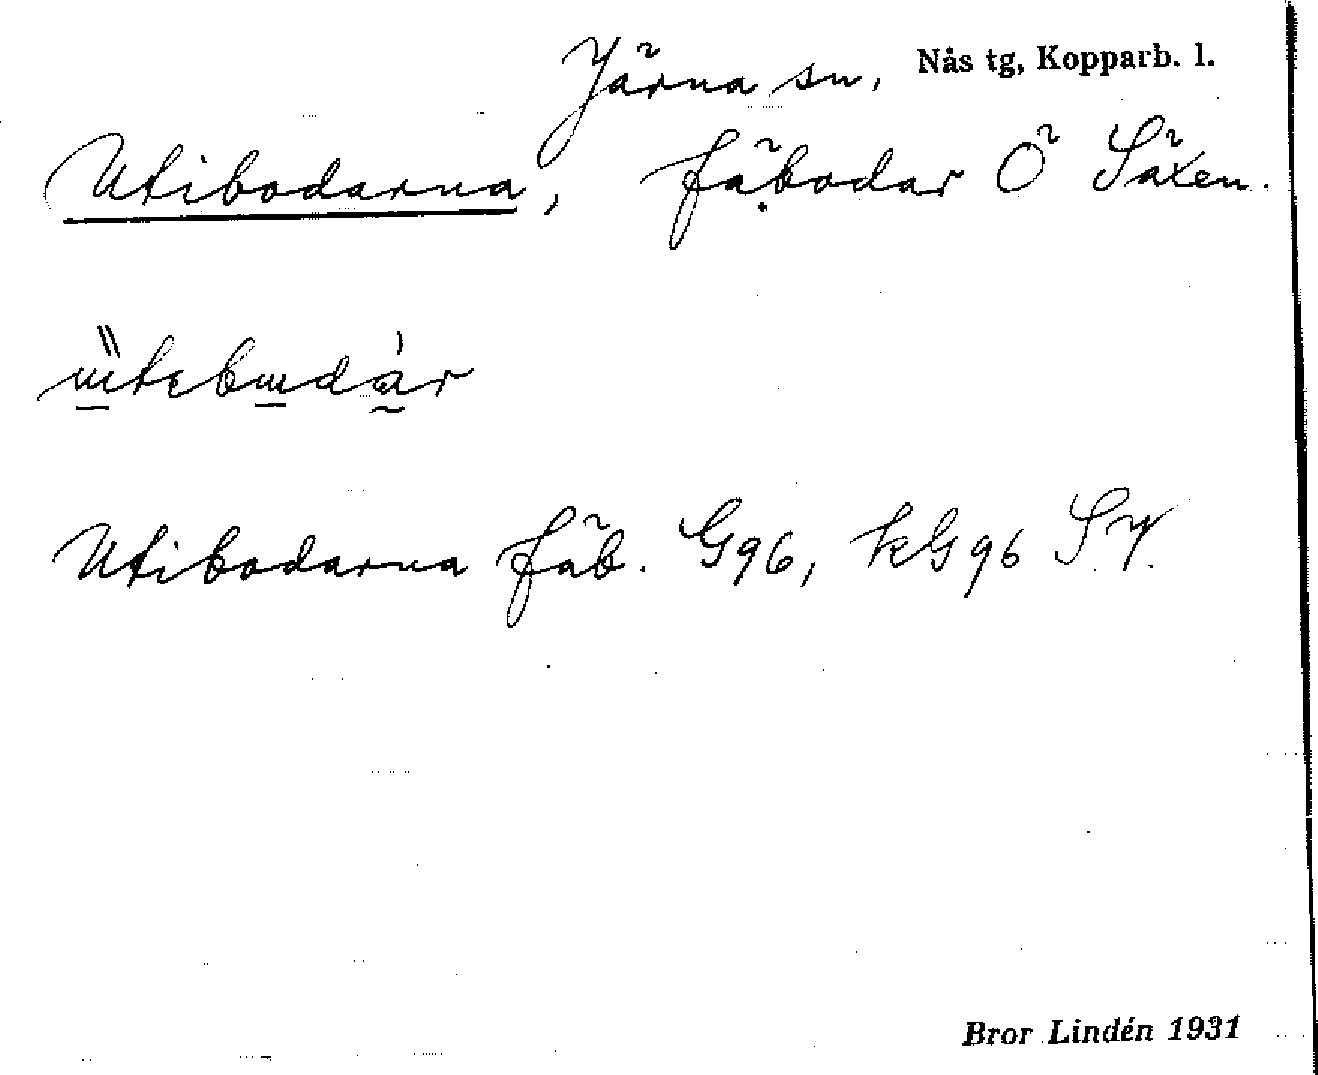 Järna sn, Nås tg, Kopparb. l.
Utibodarna, fäbodar Ö Säxen.
Utibodarna fäb. G96, kG96 SV.
Bror Lindén 1931